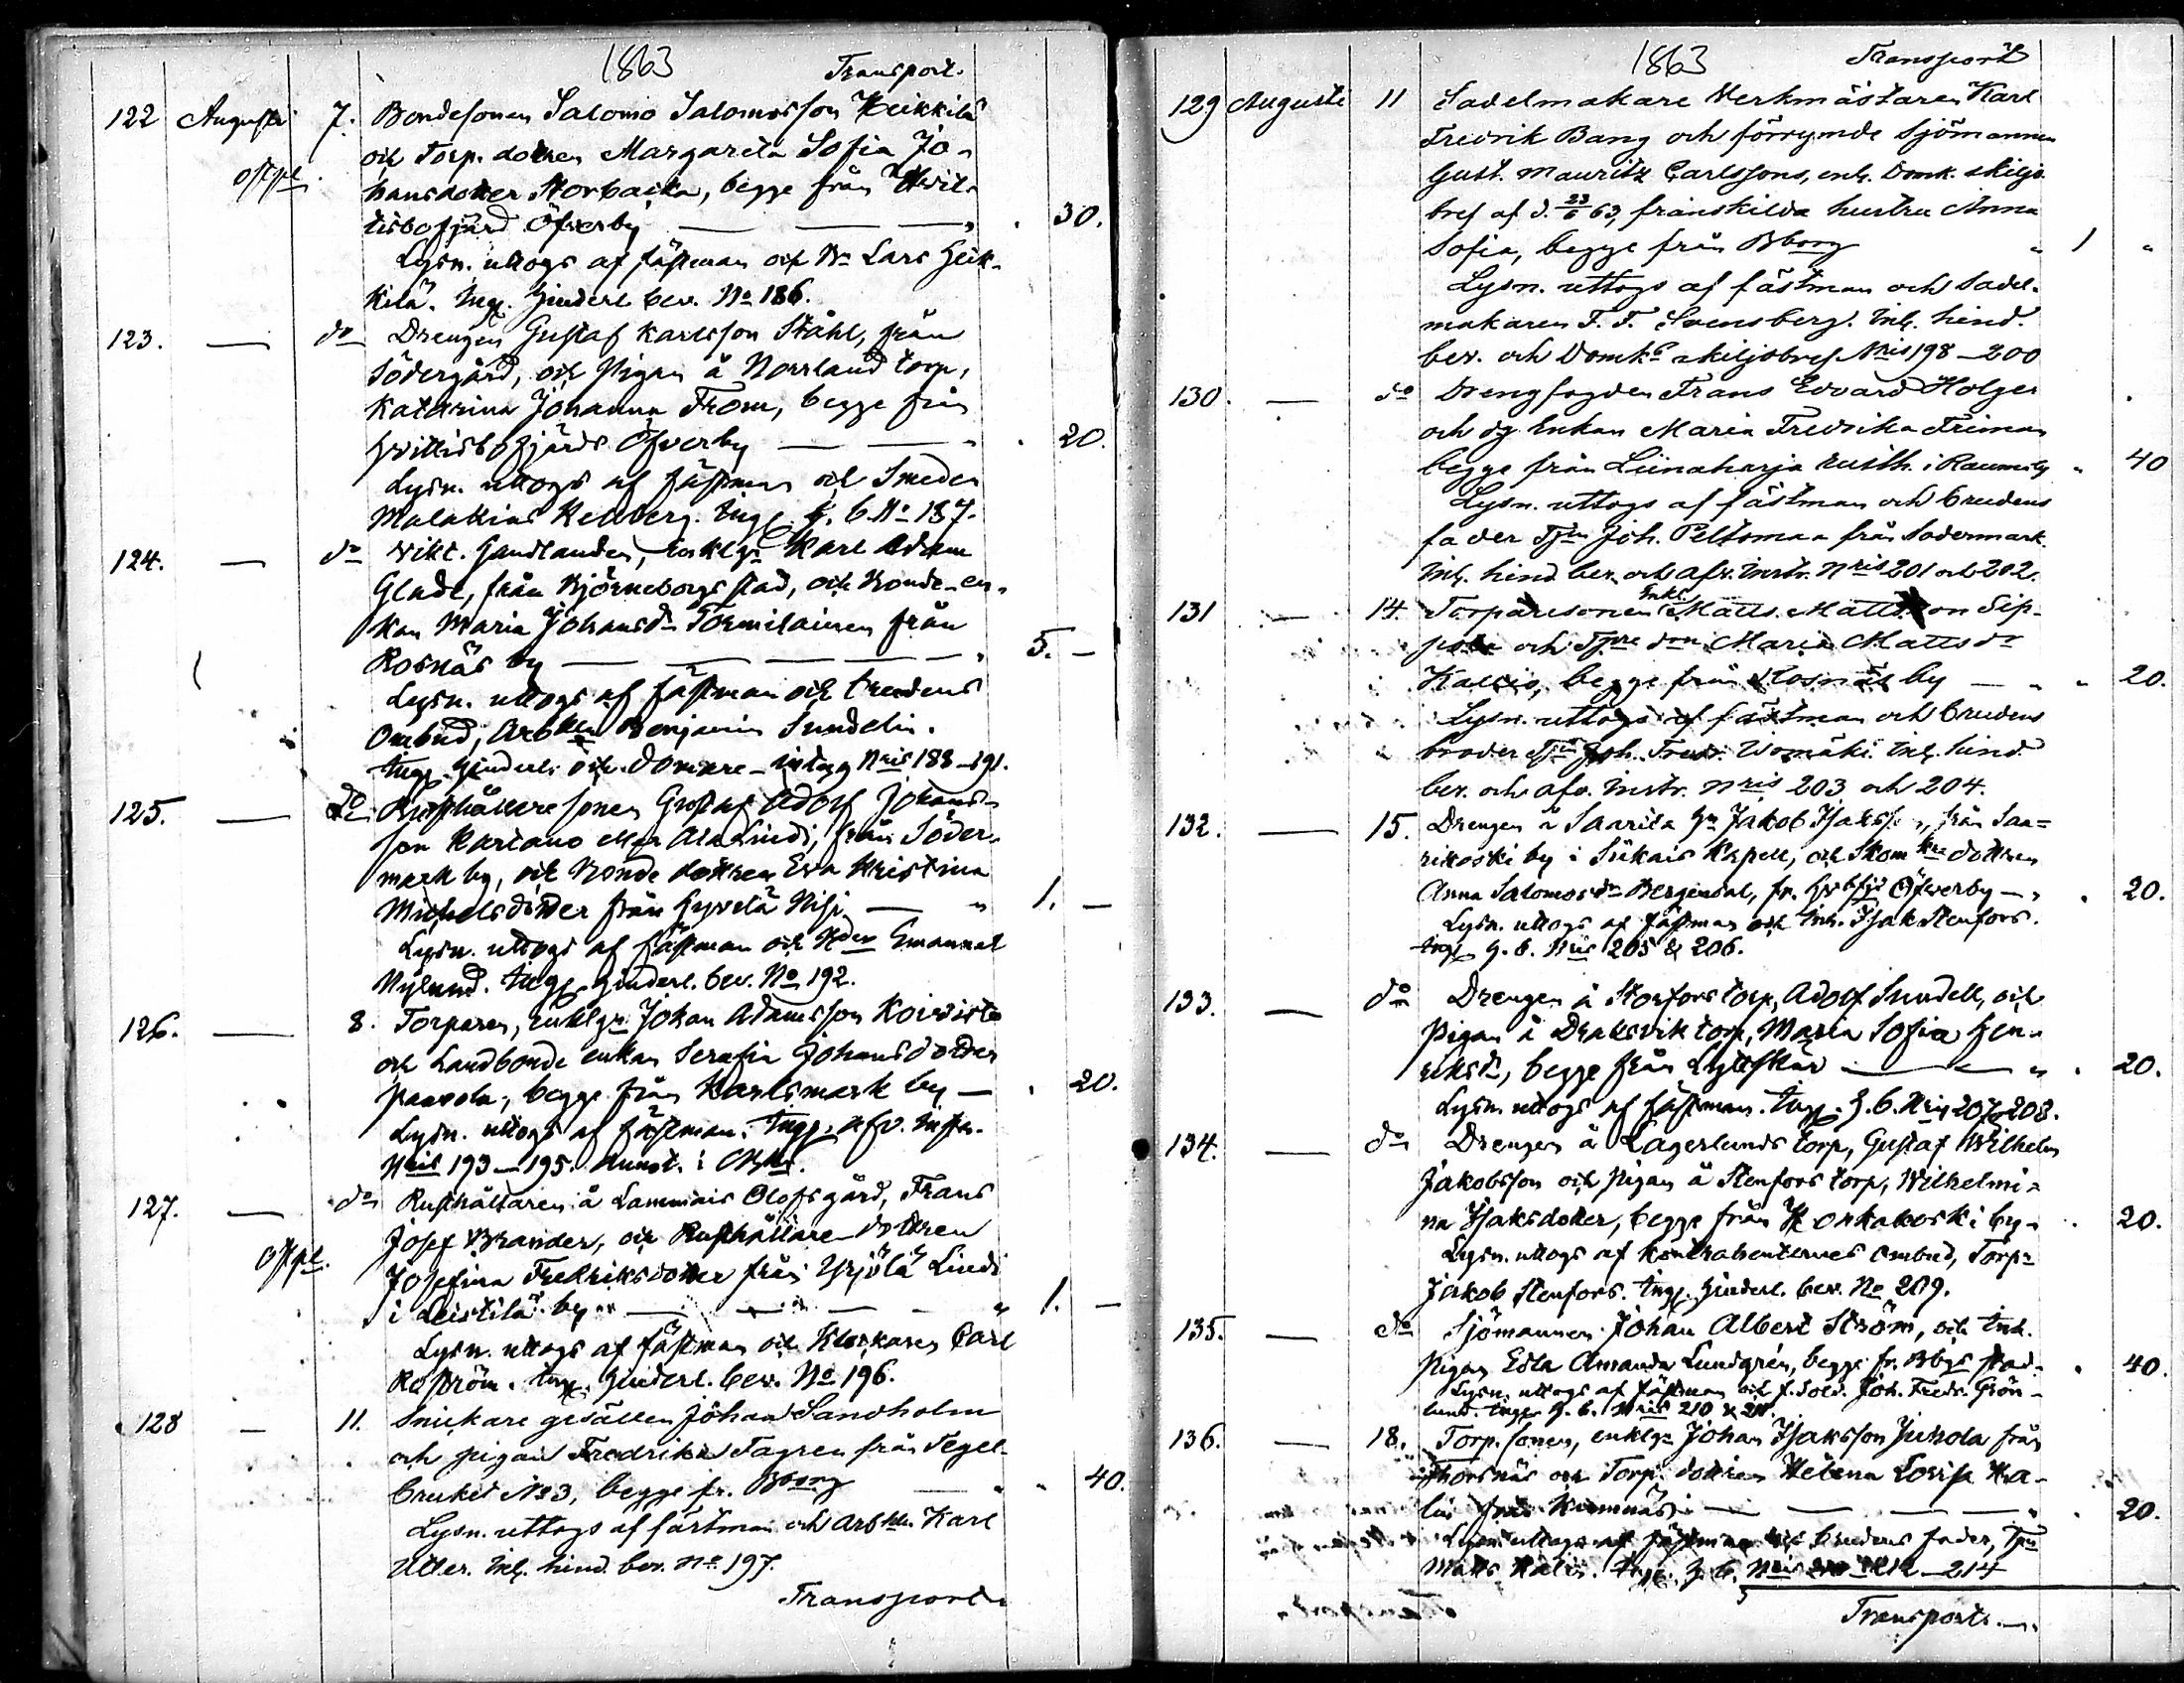 1863 Transport.
122 Augusti 7. Bondesonen Salomo Salomosson Heikkilä
och Torp. dottren Margareta Sofia Jo-
hansdotter Storbacka, begge från Hvit-
tisbofjärd Öfverby — — " . 30.
Lysn. uttogs af fästman och Bn Lars Heik-
kilä. Ing. Hinderl. bev. No 186.
123. — do Drengen Gustaf Karlsson Ståhl, från
Södergård, och Pigan å Norrland torp,
Katarina Johanna From, begge från
Hvittisbofjärds Öfverby — — " . 20.
Lysn. uttogs af fästman och Smeden
Malakias Renberg. Ing. h. b. No 187.
124. — do Vikt. Handlanden, Enklgn Karl Adam
Glade, från Björneborgs stad, och Bonde-en-
kan Maria Johansdr Tormilainen från
Rosnäs by — — — — " 5. —
Lysn. uttogs af fästman och brudens
Ombud, Arbkln Benjamin Sundelin.
Ing. Hinderl. och Domare-intyg Nris 188–191.
125. — do Rusthållare sonen Gustaf Adolf Johans-
son Kartano eller Ala Lindi, från Söder-
mark by, och Bonde dottren Eva Kristina
Michelsdotter från Hyvelä Nisi — " 1. —
Lysn. uttogs af fästman och Emanuel
Nylund. Ing. Hinderl. bev. No 192.
126. — 8. Torparen, enklgn Johan Adamsson Koivisto
och Landbonde enkan Serafia Johansdotter
Paavola, begge från Karlsmark by — . 20.
Lysn. uttogs af fästman. Ing. afv. instr.
Nris 193–195.
127. — do Rusthållaren å Lammais Olofsgård, Frans
Josef Brander, och Rusthållare-dottren
Josefina Fredriksdotter från Yrjölä Lindi
i Leistilä by — — — " 1. —
Lysn. uttogs af fästman och Klockaren Carl
Roström. Ing. Hinderl. bev. No 196.
128 — 11. Snickare gesällen Johan Sandholm
och pigan Fredrika Tagren från Tegel-
bruket No 3, begge fr. Bborg — " " 40.
Lysn. uttogs af fästman och Arbkln Karl
Utter. Inl. hind. bev. No 197.
Transport
1863 Transport
129 Augusti 11 Sadelmakare Verkmästaren Karl
Fredrik Bang och förrymde Sjömannen
Gust. Mauritz Carlssons, enl. Domk. skiljo-
bref af d. 23/6 63, frånskilda hustru Anna
Sofia, begge från Bborg " 1 "
Lysn. uttogs af fästman och Sadel-
makaren F. F. Svensberg. Inl. hind.
bev. och Domks skiljobref Nris 198–200
130. — do Drengfogden Frans Edvard Holger
och Enkan Maria Fredrika Friman
begge från Liinaharja rusth. i Raumo " 40
Lysn. uttogs af fästman och brudens
fader Tpn Joh. Peltomaa från Södermark.
Inl. hind. bev. och afv. instr. Nris 201 och 202.
131 — 14. Torparesonen Enkl. Matts Mattsson Sip-
pola och Tpre dn Maria Mattsdr
Kallio, begge från Rosnäs by — " " 20.
Lysn. uttogs af fästman och brudens
broder Tpn Joh. Fredr. Isomäki. Inl. hind.
bev. och afv. instr. Nris 203 och 204.
132. — 15. Drengen å Saarila Jakob Isaksson, från Saa-
rikoski by i Siikais Kapell, och Skomkre dottren
Anna Salomosdr Bergendal, fr. Hvbfjd Öfverby — " . 20.
Lysn. uttogs af fästman och Inh. Isak Stenfors.
Ing. h. b. Nris 205 & 206.
133. — do Drengen å Storfors torp, Adolf Sundell, och
Pigan å Draksvik torp, Maria Sofia Hen-
riksdr, begge från Lyttskär — — " . 20.
Lysn. uttogs af fästman. Ing. h. b. Nris 207 & 208.
134. — do Drengen å Lagerlunds torp, Gustaf Wilhelm
Jakobsson och Pigan å Stenfors torp, Wilhelmi-
na Isaksdotter, begge från Honkakoski by – . 20.
Lysn. uttogs af kontrahenternes ombud, Torpn
Jakob Stenfors. Ing. Hinderl. bev. No 209.
135. — do Sjömannen Johan Albert Ström, och Inh.
Pigan Edla Amanda Lundgrén, begge fr. Bbgs stad. . 40.
Lysn. uttogs af fästman och f. Sold. Joh. Fredr. Grön-
lund. Ing. h. b. Nris 210 & 211.
136. — 18. Torp. sonen, enklgn Johan Isaksson Juhola från
Thorsnäs och Torp. dottren Helena Lovisa Ka-
lin från Kumnäs — — — " . 20.
Lysn. uttogs af fästman och brudens fader, Tpn
Matts Kalin. Ing. h. b. Nris 212–214
Transport